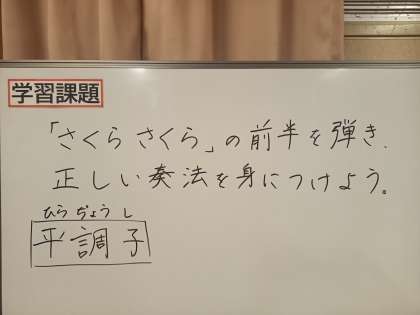 学習課題
「さくらさくら」の前半を弾き、
正しい奏法を身につけよう。
ひらぢょうし
平調子